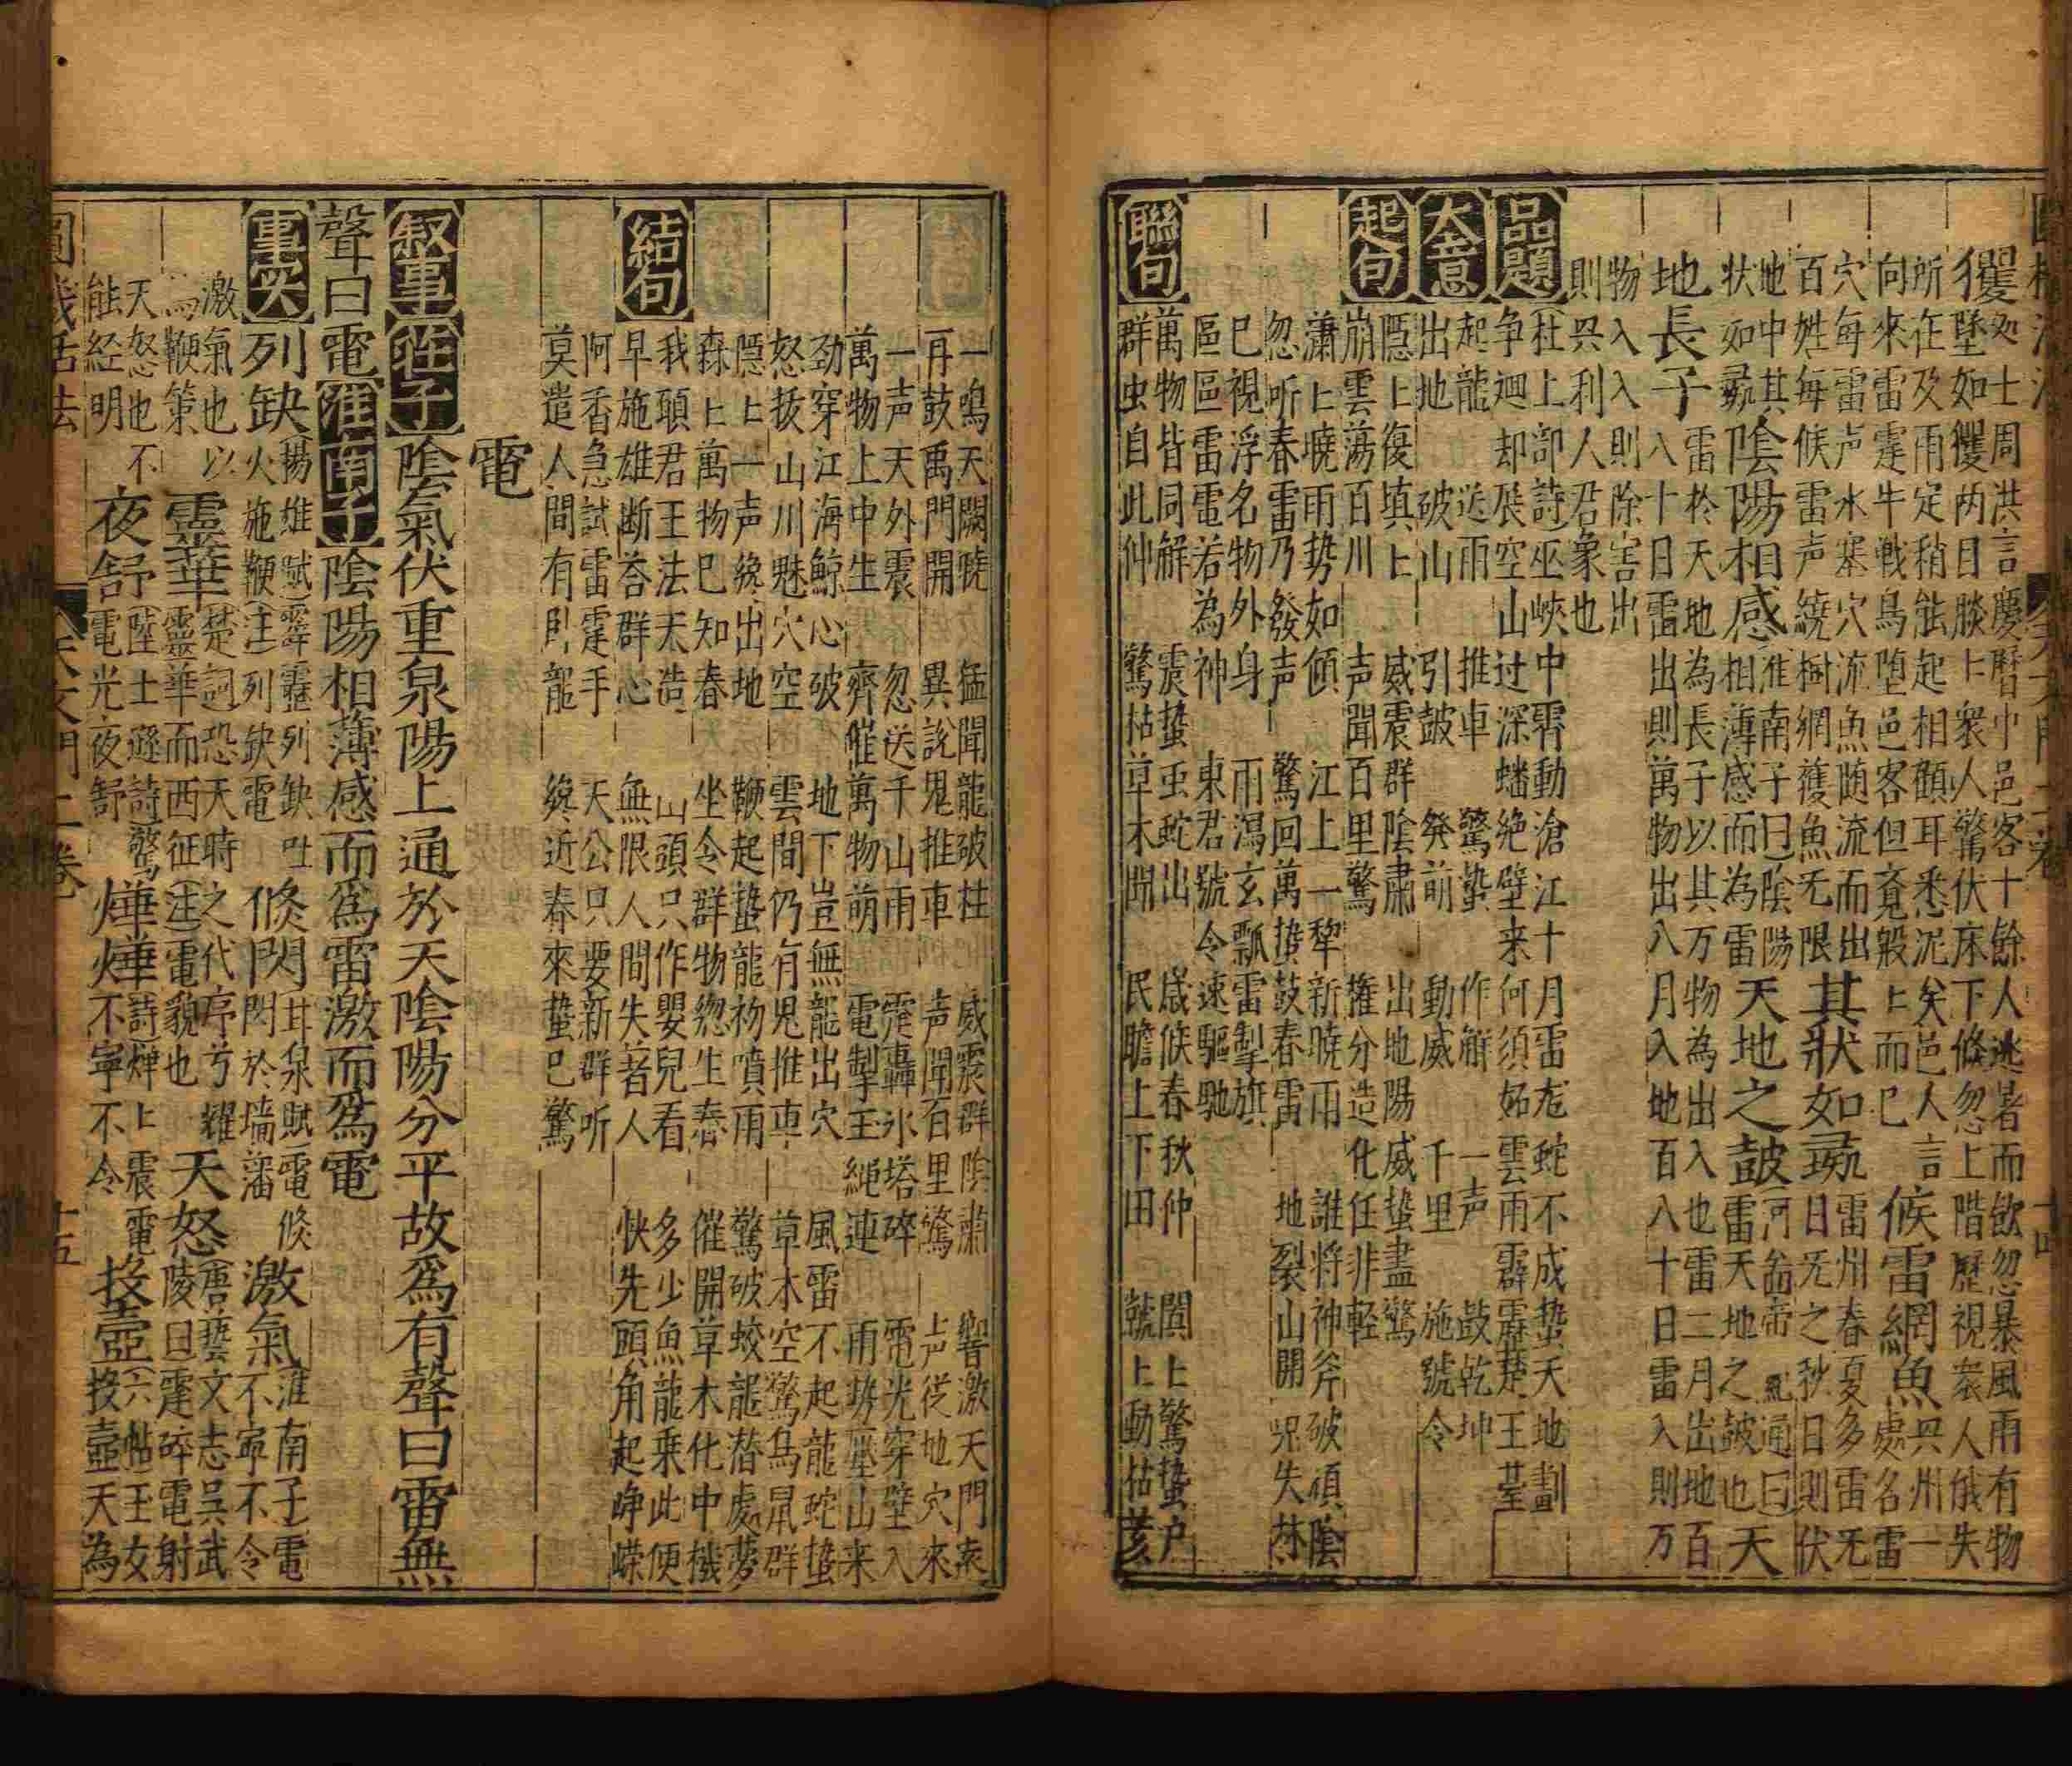 処士周洪言慶曆中邑客十餘人逃暑而飲忽暴風雨有物
玃墜如玃两目睒上衆人驚伏床下倐忽上階歷視衆人俄失
所在及雨定稍能起相顧耳悉泥矣邑人言
向來雷霆牛戰鳥墮邑客但覔殷上而已
候雷網魚
興州一
處名雷
穴每雷声水塞穴流魚随流而出
百姓每候雷声繞樹網獲魚无限
其狀如彘
雷州春夏多雷无
日无之秋日則伏
地中其
狀如彘
陰陽相感
淮南子曰陰陽
相薄感而為雷
天地之鼓
河帝通曰
雷天地之鼓也
天
地長子
雷於天地為長子以其万物為出入也雷二月出地百
八十日雷出則萬物出八月入地百八十日雷入則万
物入入則除害出
則興利人君象也
品題
杜上部詩巫峽中霄動滄江十月雷尨蛇不成蟄天地劃
争迴却展空山过深蟠絶壁来何須妬雲雨霹靂楚王䑓
大意
起龍 送雨 推車 驚蟄 作觧 一声 鼓乾坤
出地 破山 引鼓 発萌 動威 千里 施號令
起句
隱上復填上 威震群陰肅 出地陽威蟄盡驚
崩雲荡百川 声聞百里驚 権分造化任非軽
潚上曉雨势如傾 江上一犂新曉雨 誰将神斧破頑陰
忽听春雷乃發声 驚回萬蟄鼓春雷 地裂山開鬼失林
已視浮名物外身 雨瀉玄瓢雷掣旗
區區雷電若為神 東君號令速驅馳
聯句
萬物皆同解 震蟄虫蛇出 歳候春秋仲 闐上驚蟄户
群虫自此仲 驚枯草木開 民瞻上下田 虩上動枯荄
一鳴天關曉 猛聞龍破柱 威震群陰肅 響激天門来
再鼓禹門開 異說鬼推車 声聞百里驚 上声従地穴來
一声天外震 忽送千山雨 霆轟氷塔碎 電光穿壁入
萬物上中生 齊催萬物萌 電掣玉䋲連 雨势壓山来
劲穿江海鯨心破 地下豈無龍出穴 風雷不起龍蛇蟄
怒抜山川魅穴空 雲間仍有鬼推車 草木空驚鳥鼠群
隱上一声纔出地 鞭起蟄龍初噴雨 驚破蛟龍潜處夢
森上萬物已知春 坐令群物緫生春 催開草木化中機
結句
我頭君王法天造 山頭只作嬰兒看 多少魚龍乗此便
早施雄断荅群心 無限人間失著人 快先頭角起崢嶸
阿香急試雷霆手 天公只要新群听
莫遣人間有卧龍 纔近春來蟄已驚
電
叙事 莊子 陰氣伏重泉陽上通於天陰陽分平故爲有聲曰雷無
聲曰電 淮南子 陰陽相薄感而爲雷激而爲電
事实
列缺
揚雄賦霹靂列缺吐
火施鞭注列缺電
倐閃
甘泉賦電倐
閃於墻藩
激氣
淮南子電
不寧不令
激氣也以
為鞭策
靈華
楚詞恐天時之代序兮耀
靈華而西征注電貌也
天怒
唐藝文志呉武
陵曰霆碎電射
天怒也不
能経明
夜舒
陸士遜詩驚
電光夜舒
燁燁
詩燁上震電
不寧不令
投壺
六帖玉女
投壺天為